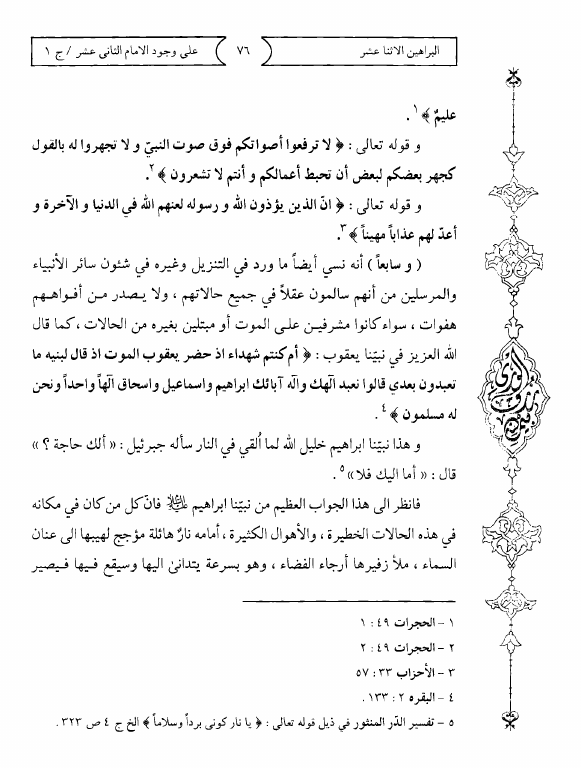 البراهين الاثنا عشر
٧٦
على وجود الامام الثانى عشر / ج ١
عليمٌ ﴾ ١ .
و قوله تعالى : ﴿ لا ترفعوا أصواتكم فوق صوت النبيّ و لا تجهروا له بالقول
كجهر بعضكم لبعض أن تحبط أعمالكم و أنتم لا تشعرون ﴾ ٢.
و قوله تعالى : ﴿ انّ الذين يؤذون الله و رسوله لعنهم الله في الدنيا و الآخرة و
أعدّ لهم عذاباً مهيناً ﴾ ٣.
( و سابعاً ) أنه نسي أيضاً ما ورد في التنزيل وغيره في شئون سائر الأنبياء
والمرسلين من أنهم سالمون عقلاً في جميع حالاتهم ، ولا يـصدر مـن أفـواهـهم
هفوات ، سواء كانوا مشرفـين عـلى الموت أو مبتلين بغيره من الحالات ، كما قال
الله العزيز في نبيّنا يعقوب : ﴿ أم كنتم شهداء اذ حضر يعقوب الموت اذ قال لبنيه ما
تعبدون بعدي قالوا نعبد الٓهك واله آبائك ابراهيم واسماعيل واسحاق الٓهاً واحداً ونحن
له مسلمون ﴾ ٤ .
و هذا نبيّنا ابراهيم خليل الله لما اُلقي في النار سأله جبرئيل : « ألك حاجة ؟ »
قال : « أما اليك فلا» ٥ .
فانظر الى هذا الجواب العظيم من نبيّنا ابراهيم ﷷ فانّ كل من كان في مكانه
في هذه الحالات الخطيرة ، والأهوال الكثيرة ، أمامه نارٌ هائلة مؤجج لهيبها الى عنان
السماء ، ملأ زفيرها أرجاء الفضاء ، وهو بسرعة يتدانىٰ اليها وسيقع فـيها فـيصير
١ - الحجرات ٤٩ : ١
٢ - الحجرات ٤٩ : ٢
٣ - الأحزاب ٣٣ : ٥٧
٤ - البقره ٢ : ١٣٣ .
٥ - تفسير الدّر المنثور في ذيل قوله تعالى : ﴿ يا نار كونى برداً وسلاماً ﴾ الخ ج ٤ ص ٣٢٣ .